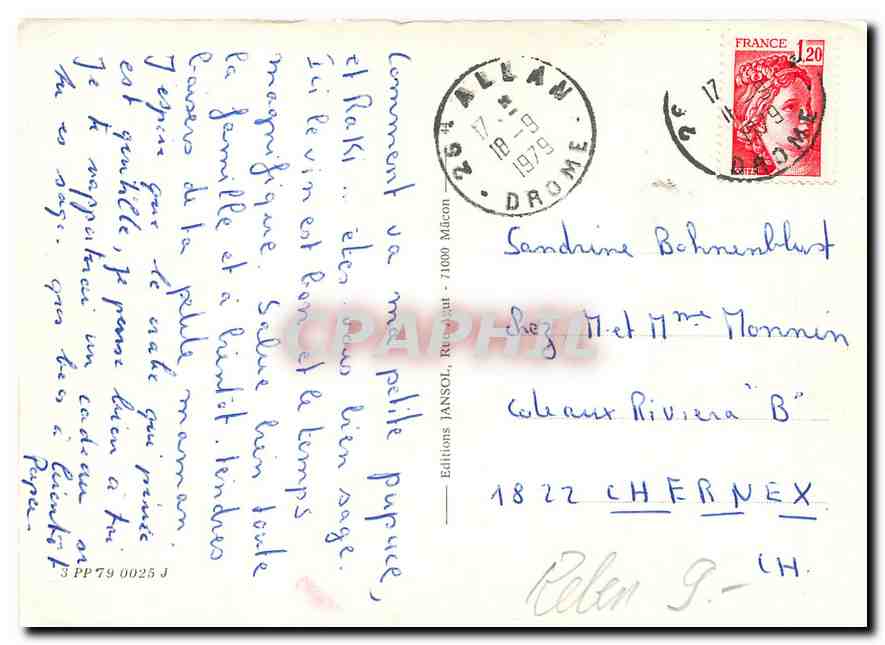 Comment va ma petite pupuce,
et Raki .. êtes-vous bien sage.
Ici le vin est bon et le temps
magnifique. Salue bien toute
la famille et à bientôt. tendres
baisers de ta petite maman.
J'espère que le crabe qui pince
est gentille, je pense bien à toi
Je te rapporterai un cadeau si
tu es sage. gros becs à bientôt
Papa.
3 PP 79 0025 J
Editions JANSOL, Rue - 71000 Mâcon
26 ALLAN
17
18-9
1979
DROME
FRANCE 1,20
26
17
18
1979
DROME
Sandrine Bohnenblust
chez M. et Mme Monnin
Coteaux Riviera "B"
1822 CHERNEX
CH.
9.-
CPAPHIL